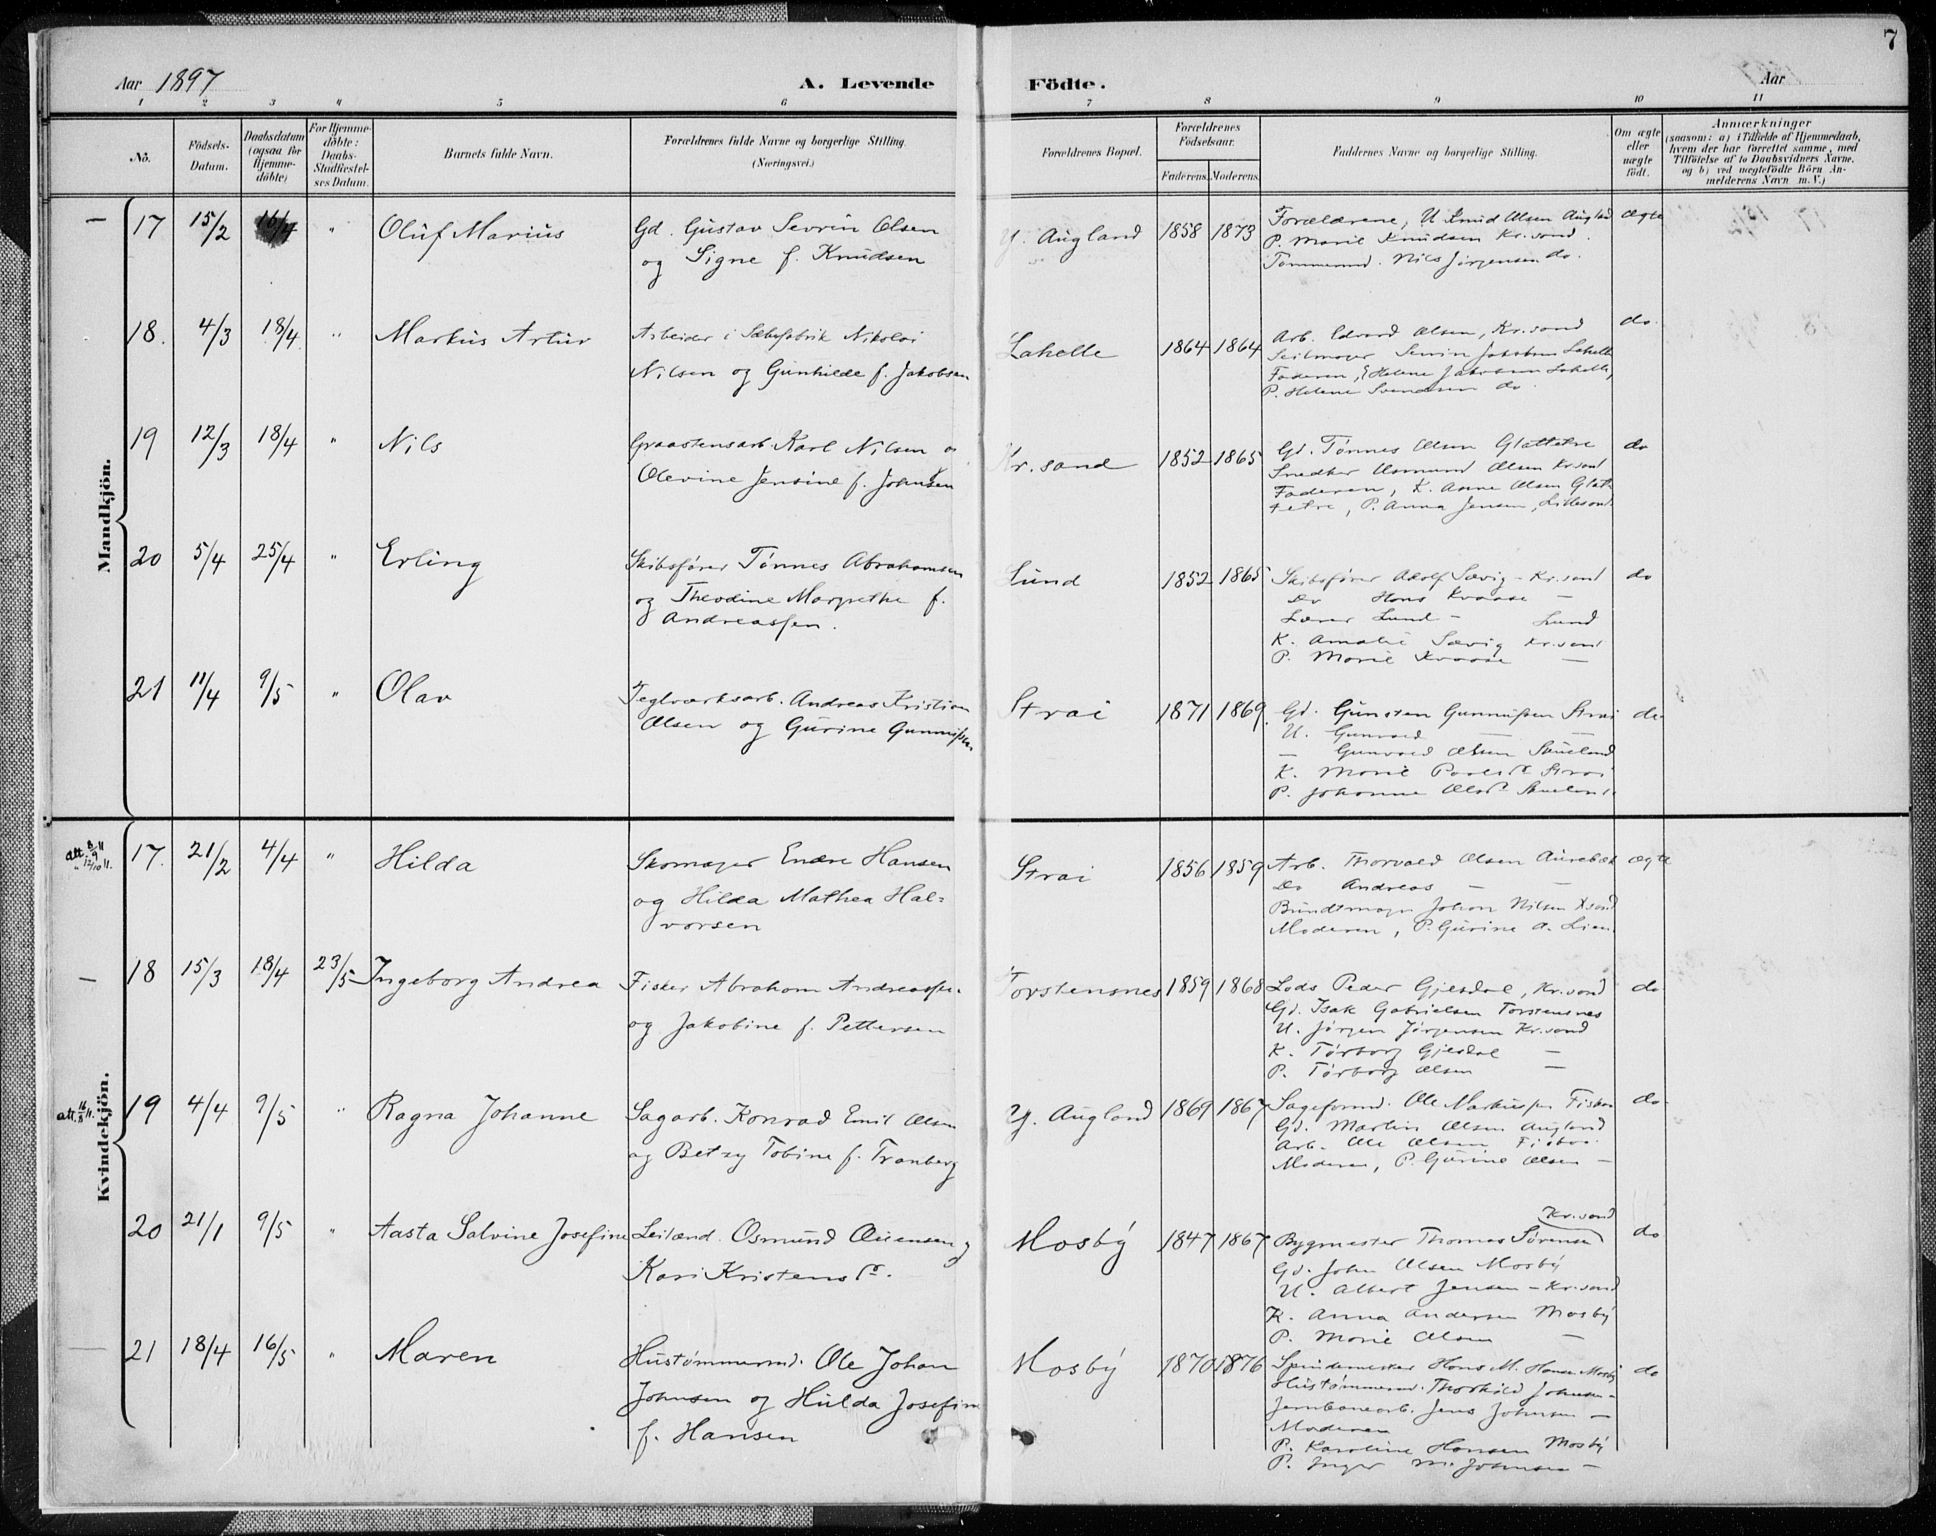 7
Aar 1897 A. Levende Födte. Aar
1 2 3 4 5 6 7 8 9 10 11
No. Födsels-Datum. Daabsdatum (ogsaa for Hjemme-döbte) For Hjemme-döbte: Daabs-Stadfæstel-ses Datum. Barnets fulde Navn. Forældrenes fulde Navne og borgerlige Stilling. (Næringsvei.) Forældrenes Bopæl. Forældrenes Födselsaar. Faderens. Moderens. Faddernes Navne og borgerlige Stilling. Om ægte eller uægte födt. Anmærkninger (saasom: a) i Tilfælde af Hjemmedaab, hvem der har forrettet samme, med Tilföielse af to Daabsvidners Navne, og b) ved uægtefödte Börn An-melderens Navn m. V.)
Mandkjön.
17 15/2 16/4 " Oluf Marius Gd. Gustav Sevrin Olsen Y. Augland 1858 1873 Forældrene, U. Knud Olsen Augland ægte
og Signe f. Knudsen P. Marie Knudsen Kr.sand.
Tømmermd. Nils Jørgensen do.
18. 4/3 18/4 " Markus Artur Arbeider i Sæbefabrik Nikolai Lahelle 1864 1864 Arb. Edvard Olsen, Kr.sand do.
Nilsen og Gunhilde f. Jakobsen Seilmager Sevrin Jakobsen Lahelle
Faderen, Helene Jakobsen Lahelle,
P. Helene Svendsen do.
19 12/3 18/4 " Nils Graastensarb. Karl Nilsen og Kr.sand 1852 1865 Gd. Tønnes Olsen Glattetre do
Olevine Jensine f. Johnsen Snedker Osmund Olsen Kr.sand
Faderen, K. Anne Olsen Glat-
tetre, P. Anna Jensen, Lillesand.
20 5/4 25/4 " Erling Skibsfører Tønnes Abrahamsen Lund 1852 1865 Skibsfører Adolf Sævig - Kr.sand do
og Theodine Margrethe f. Do Hans Kvaase —
Andreassen. Lærer Lund - Lund
K. Amalie Sævig Kr.sand
P. Marie Kvaase —
21 11/4 9/5 " Olav Teglværksarb. Andreas Kristian Strai 1871 1869 Gd. Gunsten Gunnufsen Strai do
Olsen og Gurine Gunnufsen U. Gunvald — —
— Gunvald Olsen Strai
K. Marie Strai
P. Johanne Olsdr
Kvindekjön.
Att. 8/9 12/10
17. 21/2 4/4 " Hilda Skomager Endre Hansen Strai 1856 1859 Arb. Thorvald Olsen Aurebæk ægte
og Hilda Mathea Hal= Do Andreas — —
vorsen Bundtmager Johan Nilsen K.sand
Moderen, P. Gurine A. Lien
18 15/3 18/4 23/5 Ingeborg Andrea Fisker Abraham Andreassen Torstensnes 1859 1868 Lods Peder Gjesdal, Kr.sand do
og Jakobine f. Pettersen Gd. Isak Gabrielsen Torstensnes
U. Jørgen Jørgensen Kr.sand
K. Tørborg Gjesdal —
P. Tørborg Olsen —
Att.
19 4/4 9/5 " Ragna Johanne Sagarb. Konrad Emil Olsen Y. Augland 1869 1867 Sageformd. Ole Markussen Fiskaa do
og Betzy Tobine f. Tranberg Gd. Martin Olsen Augland
Arb. Ole Olsen Fiskaa
Moderen, P. Gurine Olsen —
20 21/1 9/5 " Aasta Salvine Josefine Leilænd. Osmund Øiensen og Mosby 1847 1867 Bygmester Thomas Sørensen Kr.sand do
Kari Kristensdr. Gd. John Olsen Mosby
U. Albert Jensen - Kr.sand
K. Anna Andersen Mosby
P. Marie Olsen —
21 18/4 16/5 " Maren Hustømmermd. Ole Johan Mosby 1870 1876 Spindemester Hans M. Hansen Mosby do
Johnsen og Hulda Josefine Hustømmermd. Thorkild Johnsen -
f. Hansen Jernbanearb. Jens Johnsen —
Moderen
P. Karoline Hansen Mosby
P. Inger M. Johnsen —